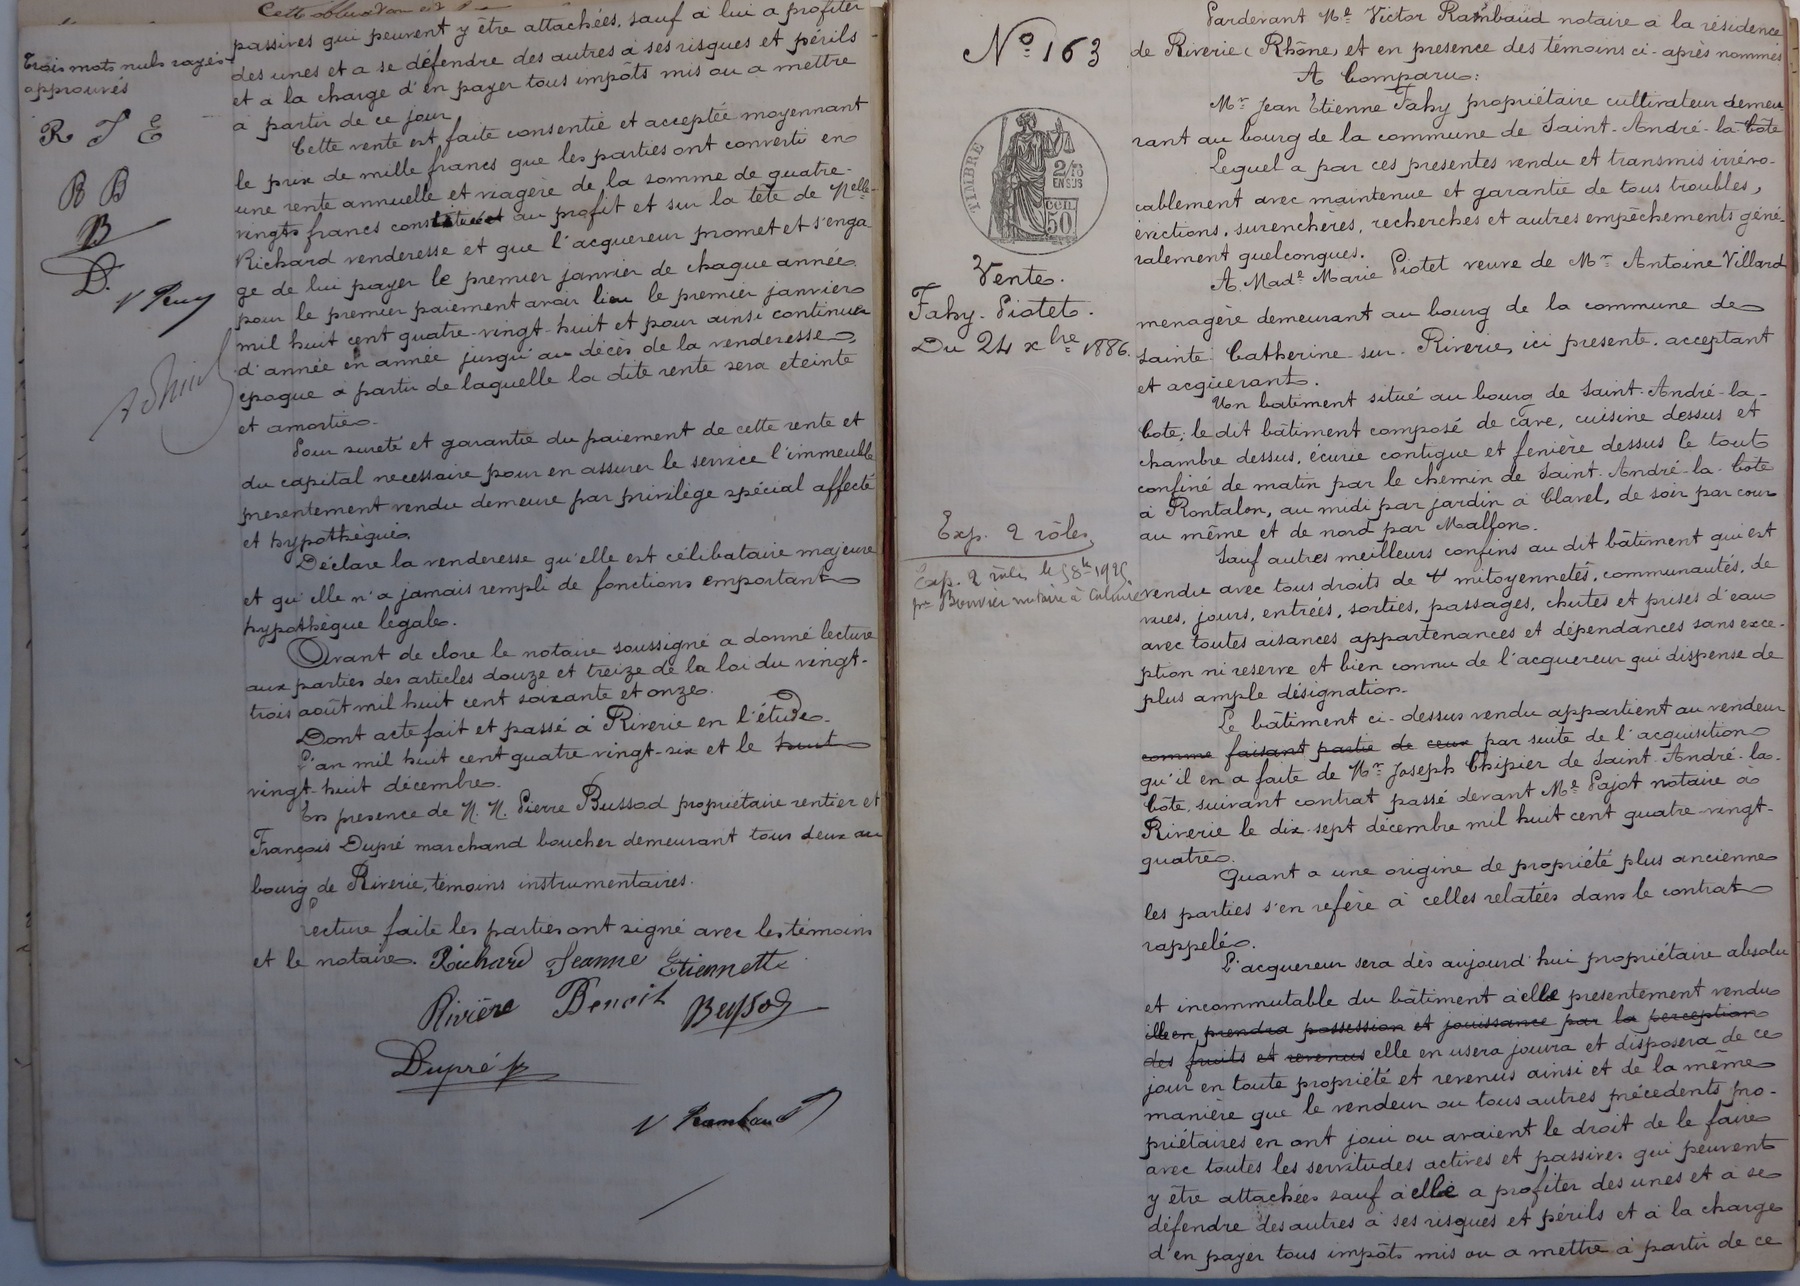 Cette observation est
Trois mots nuls rayés
approuvés
R J E
B B
B
D.
passives qui peuvent y être attachées, sauf à lui a profiter
des unes et a se défendre des autres à ses risques et périls
et a la charge d'en payer tous impôts mis ou a mettre
à partir de ce jour
Cette vente est faite consentie et acceptée moyennant
le prix de mille francs que les parties ont converti en
une rente annuelle et viagère de la somme de quatre-
vingts francs constituée au profit et sur la tête de Melle
Richard venderesse et que l'acquereur promet et s'enga
ge de lui payer le premier janvier de chaque année
pour le premier paiement avoir lieu le premier janvier
mil huit cent quatre-vingt-huit et pour ainsi continuer
d'année en année jusqu'au décès de la venderesse,
époque a partir de laquelle la dite rente sera eteinte
et amortie.
Pour sureté et garantie du paiement de cette rente et
du capital necessaire pour en assurer le service l'immeuble
presentement vendu demeure par privilège spécial affecté
et hypothéqué.
Déclare la venderesse qu'elle est célibataire majeure
et qu'elle n'a jamais rempli de fonctions emportant
hypothèque légale.
Avant de clore le notaire soussigné a donné lecture
aux parties des articles douze et treize de la loi du vingt-
trois août mil huit cent soixante et onze.
Dont acte fait et passé à Riverie en l'étude.
L'an mil huit cent quatre-vingt-six et le huit
vingt-huit décembre.
En presence de M. M. Pierre Bussod propriétaire rentier et
François Dupré marchand boucher demeurant tous deux au
bourg de Riverie, témoins instrumentaires.
Lecture faite les parties ont signé avec les témoins
et le notaire. Richard Jeanne Etiennette
Rivière Benoit Beysod
Dupré
V Rambaud
No 163
TIMBRE
2/10
EN SUS
cen.
50
Vente.
Fahy-Piotet.
Du 24 xbre 1886.
Exp. 2 rôles
Exp. 2 rôles le
pr Bouvier notaire à
Pardevant Me Victor Rambaud notaire à la résidence
de Riverie (Rhône) et en presence des témoins ci-après nommés
A Comparu:
Mr Jean Etienne Fahy propriétaire cultivateur demeu
rant au bourg de la commune de Saint-André-la-Côte
Lequel a par ces présentes vendu et transmis irrévo-
cablement avec maintenue et garantie de tous troubles,
évictions, surenchères, recherches et autres empêchements géné-
ralement quelconques.
A Made Marie Piotet veuve de Mr Antoine Villard
menagère demeurant au bourg de la commune de
Sainte Catherine sur Riverie, ici presente, acceptant
et acquerant.
Un bâtiment situé au bourg de Saint-André-la-
Côte; le dit bâtiment composé de cave, cuisine dessus et
chambre dessus, écurie contigue et fenière dessus le tout
confiné de matin par le chemin de Saint-André-la-Côte
à Rontalon, au midi par jardin a Clavel, de soir par cour
au même et de nord par Mallon.
Sauf autres meilleurs confins au dit bâtiment qui est
vendu avec tous droits de mitoyennetés, communautés, de
vues, jours, entrées, sorties, passages, chutes et prises d'eau
avec toutes aisances appartenances et dépendances sans exce-
ption ni reserve et bien connu de l'acquereur qui dispense de
plus ample désignation.
Le bâtiment ci-dessus vendu appartient au vendeur
comme faisant partie de ceux par suite de l'acquisition
qu'il en a faite de Mr Joseph Chipier de Saint-André-la-
Côte, suivant contrat passé devant Me Pajot notaire à
Riverie le dix-sept décembre mil huit cent quatre-vingt-
quatre.
Quant a une origine de propriété plus ancienne
les parties s'en refère à celles relatées dans le contrat
rappelé.
L'acquereur sera dès aujourd'hui propriétaire absolu
et incommutable du bâtiment à elle presentement vendu
ille en prendra possession et jouissance par la perception
des fruits et revenus elle en usera jouira et disposera de ce
jour en toute propriété et revenus ainsi et de la même
manière que le vendeur ou tous autres précédents pro-
priétaires en ont joui ou avaient le droit de le faire
avec toutes les servitudes actives et passives qui peuvent
y être attachées sauf à elle a profiter des unes et a se
défendre des autres à ses risques et périls et à la charge
d'en payer tous impôts mis ou a mettre à partir de ce